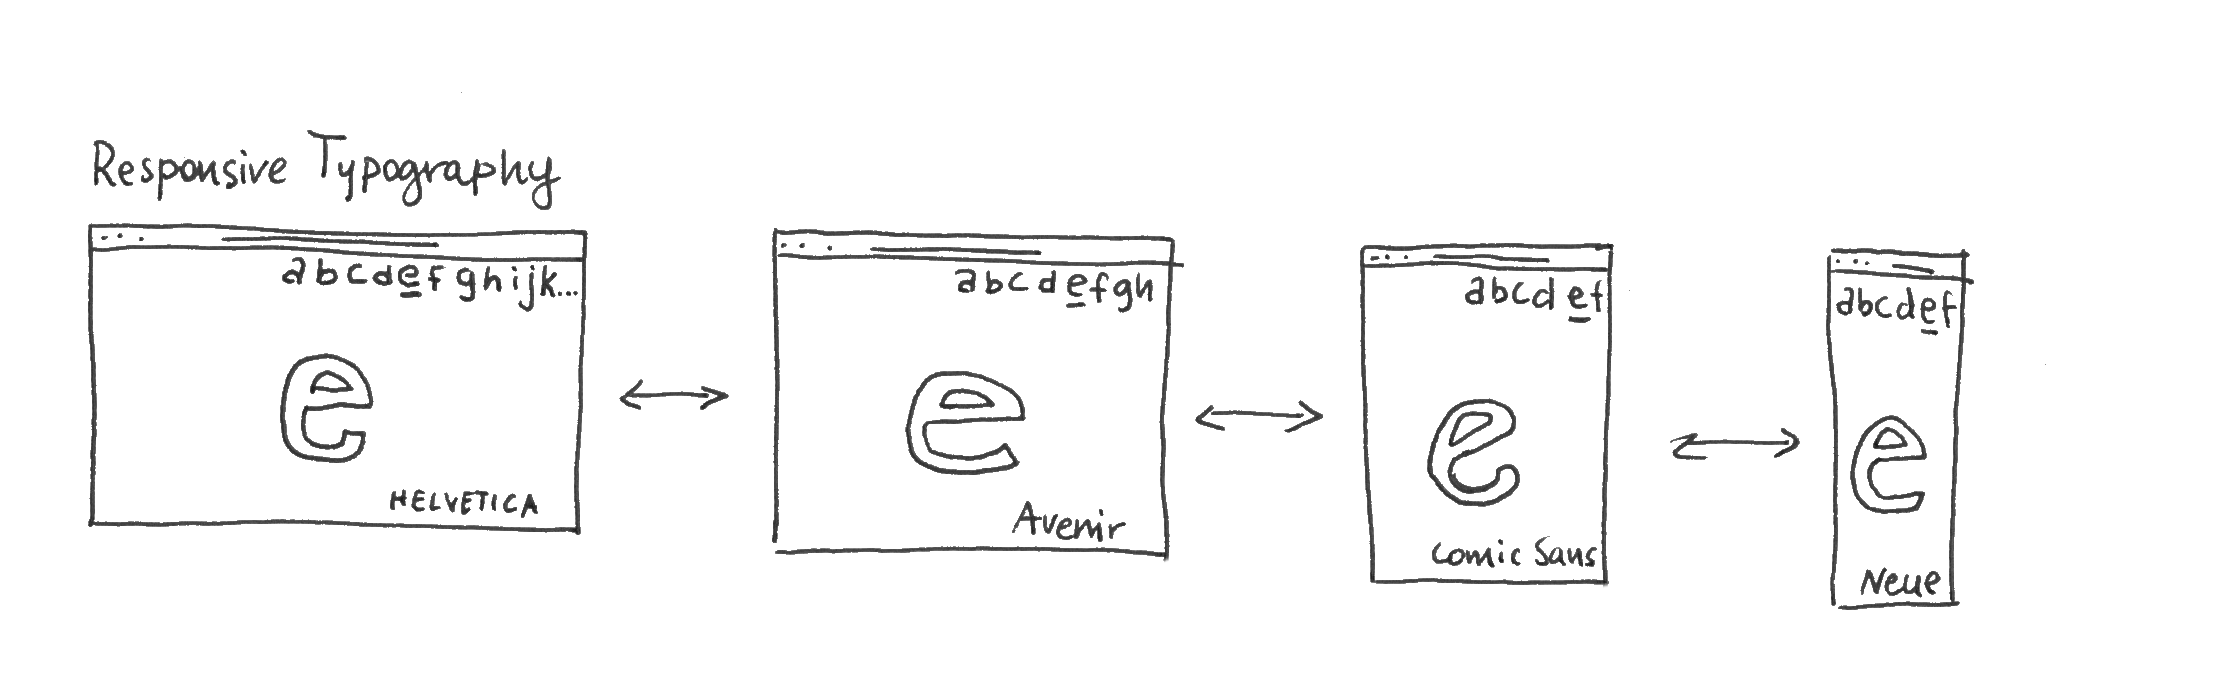 Responsive Typography
abcdefghijk...
e
HELVETICA
abcdefgh
e
Avenir
abcdef
e
Comic Sans
abcdef
e
Neue